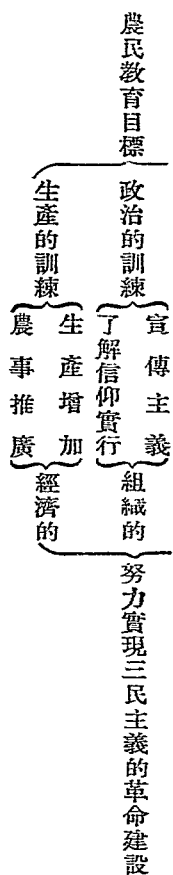 農民教育目標
政治的訓練
宣傳主義
了解信仰實行
組織的
生產的訓練
生產增加
農事推廣
經濟的
努力實現三民主義的革命建設